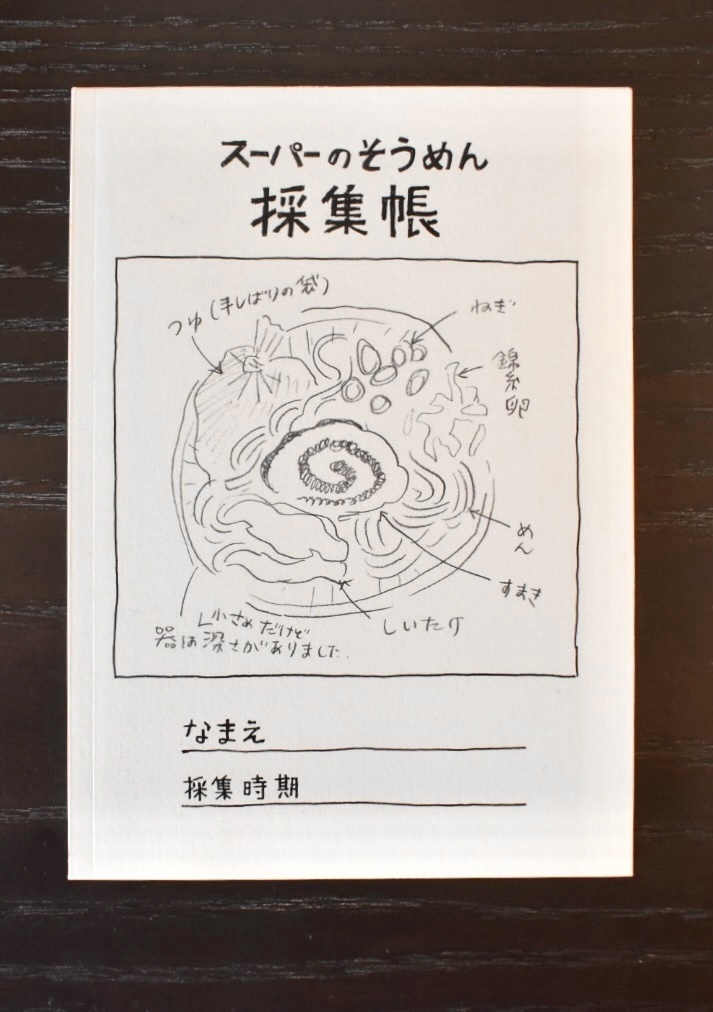 スーパーのそうめん
採集帳
つゆ(手しばりの袋)
ねぎ
錦糸卵
めん
すまき
しいたけ
小さめだけど
器は深さがありました.
なまえ
採集時期